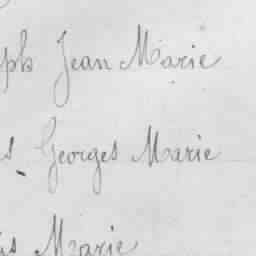 Jean Marie
Georges Marie
Marie